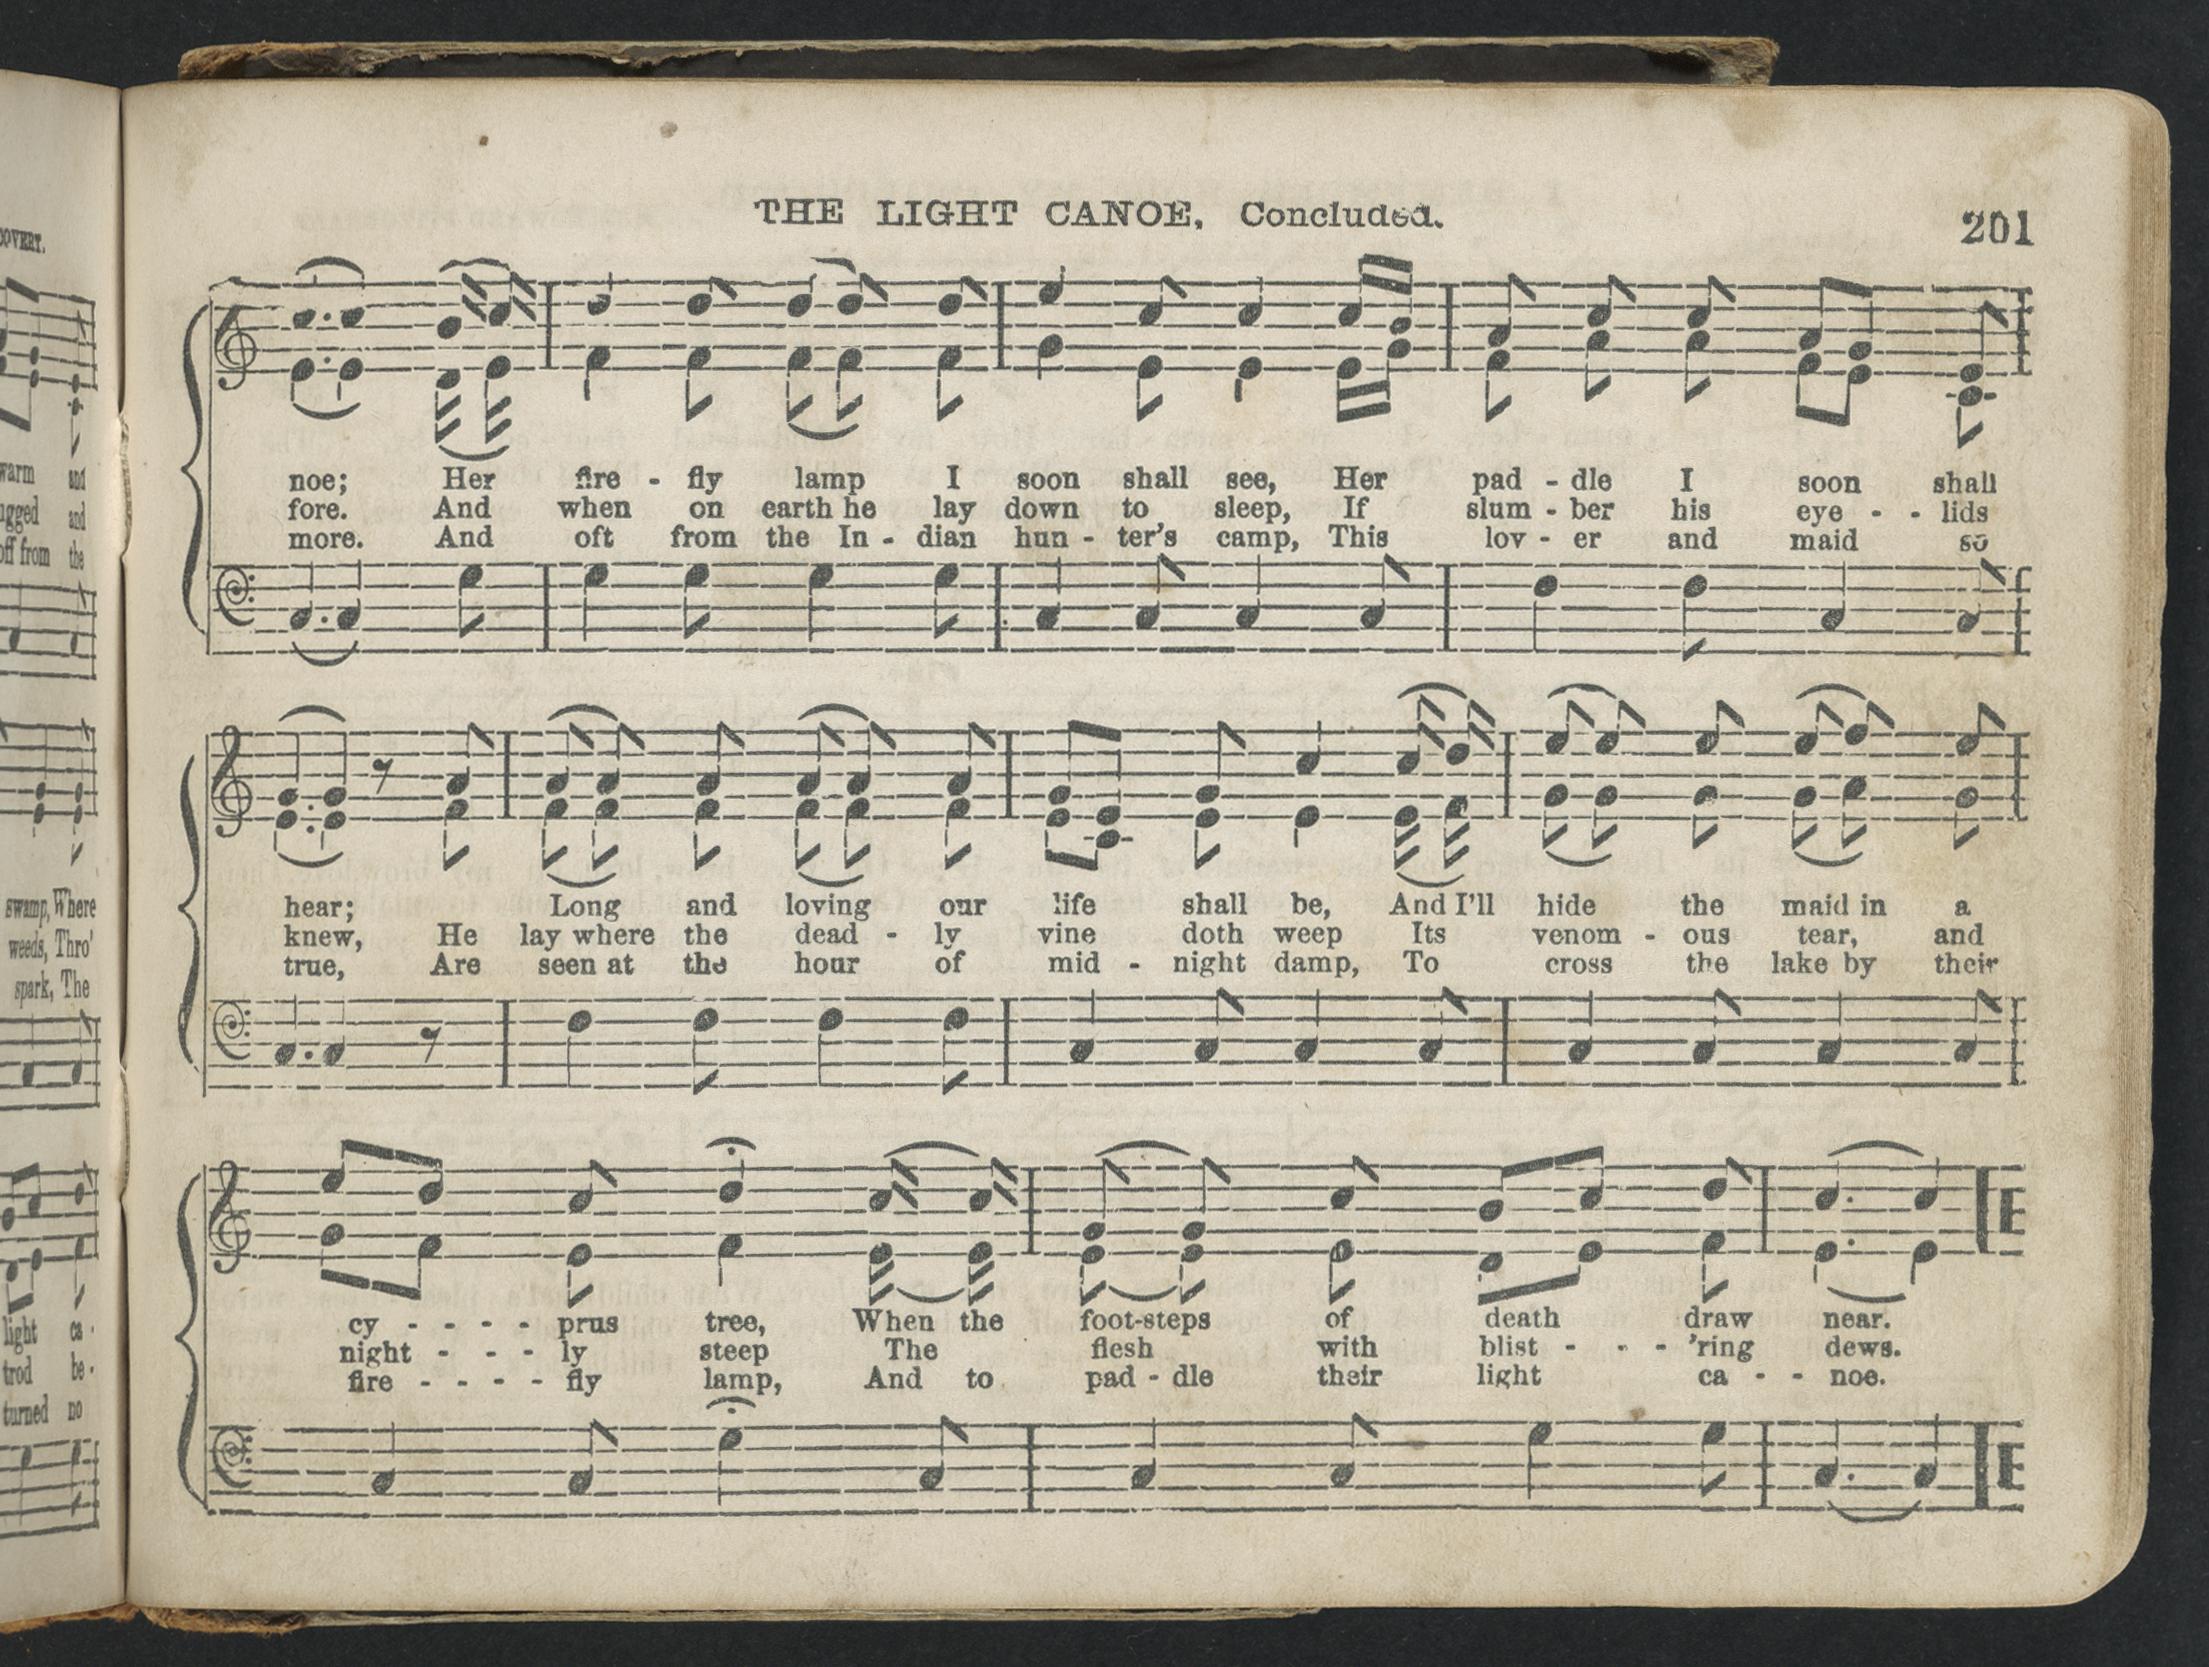 THE LIGHT CANOE, Concluded.
201
noe; Her fire - fly lamp I soon shall see, Her pad - dle I soon shall
fore. And when on earth he lay down to sleep, If slum - ber his eye - - lids
more. And oft from the In - dian hun - ter's camp, This lov - er and maid so
hear; Long and loving our life shall be, And I'll hide the maid in a
knew, He lay where the dead - ly vine doth weep Its venom - ous tear, and
true, Are seen at the hour of mid - night damp, To cross the lake by their
cy - - - - prus tree, When the foot-steps of death draw near.
night - - - ly steep The flesh with blist - - - 'ring dews.
fire - - - - fly lamp, And to pad - dle their light ca - - noe.
OVERT.
warm and
ugged and
off from the
swamp, Where
weeds, Thro'
spark, The
light ca -
trod be -
turned no